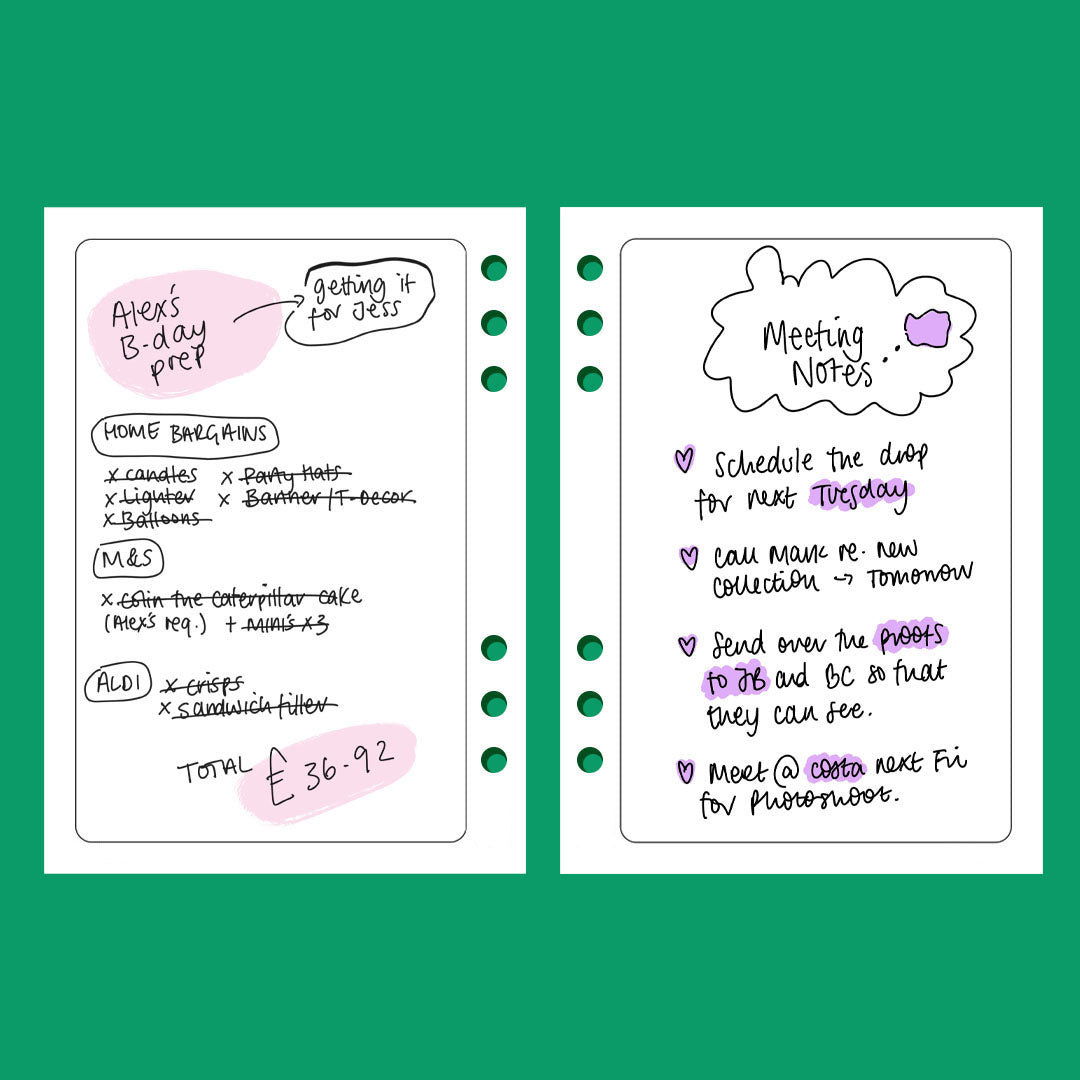 Alex's
B-day
prep
getting it
for Jess
HOME BARGAINS
x candles x Party hats
x Lighter x Banner/T-Decor
x Balloons
M&S
x colin the caterpillar cake
(Alex's req.) + Mini's x3
ALDI
x crisps
x sandwich filler
TOTAL £36-92
Meeting
Notes
Schedule the drop
for next Tuesday
Call Mark re. new
collection → Tomorrow
Send over the proofs
to JB and BC so that
they can see.
Meet @ costa next Fri
for Photoshoot.